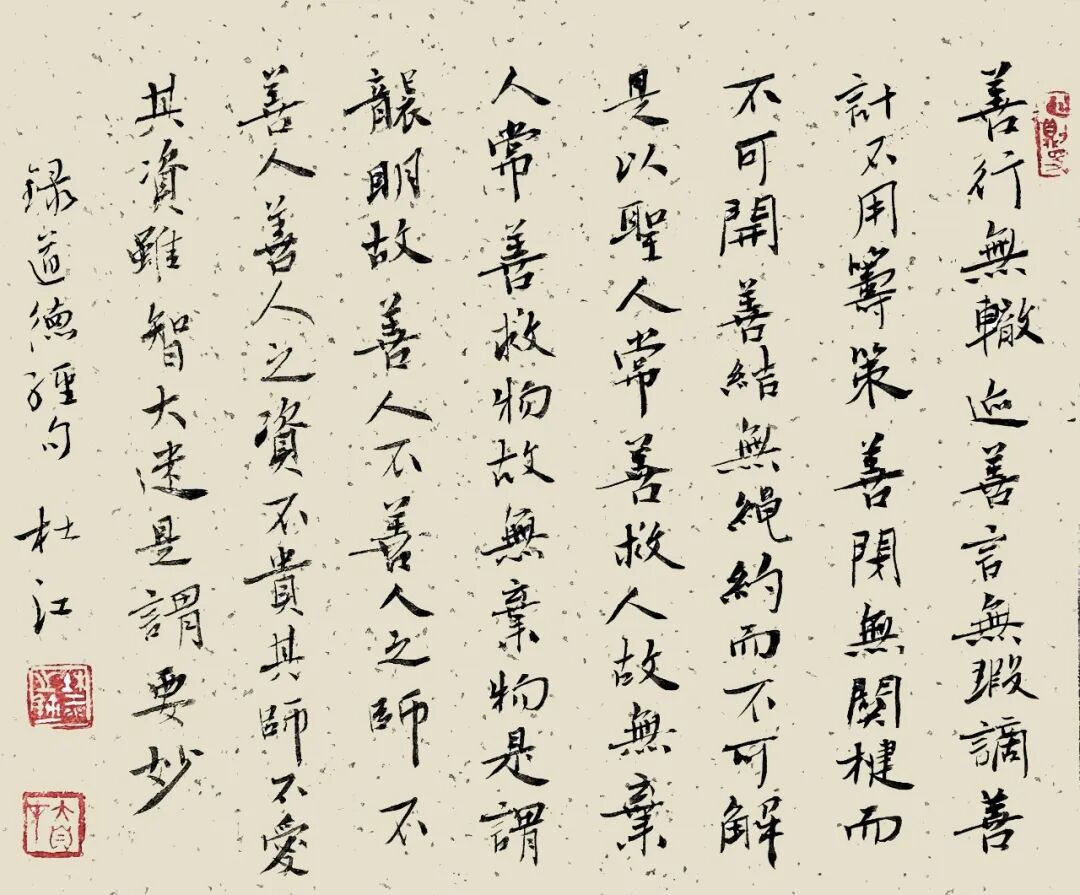 善行無轍迹善言無瑕謫善
計不用籌策善閉無關楗而
不可開善結無繩約而不可解
是以聖人常善救人故無棄
人常善救物故無棄物是謂
襲明故善人不善人之師不
善人善人之資不貴其師不愛
其資雖智大迷是謂要妙
錄道德經句 杜江